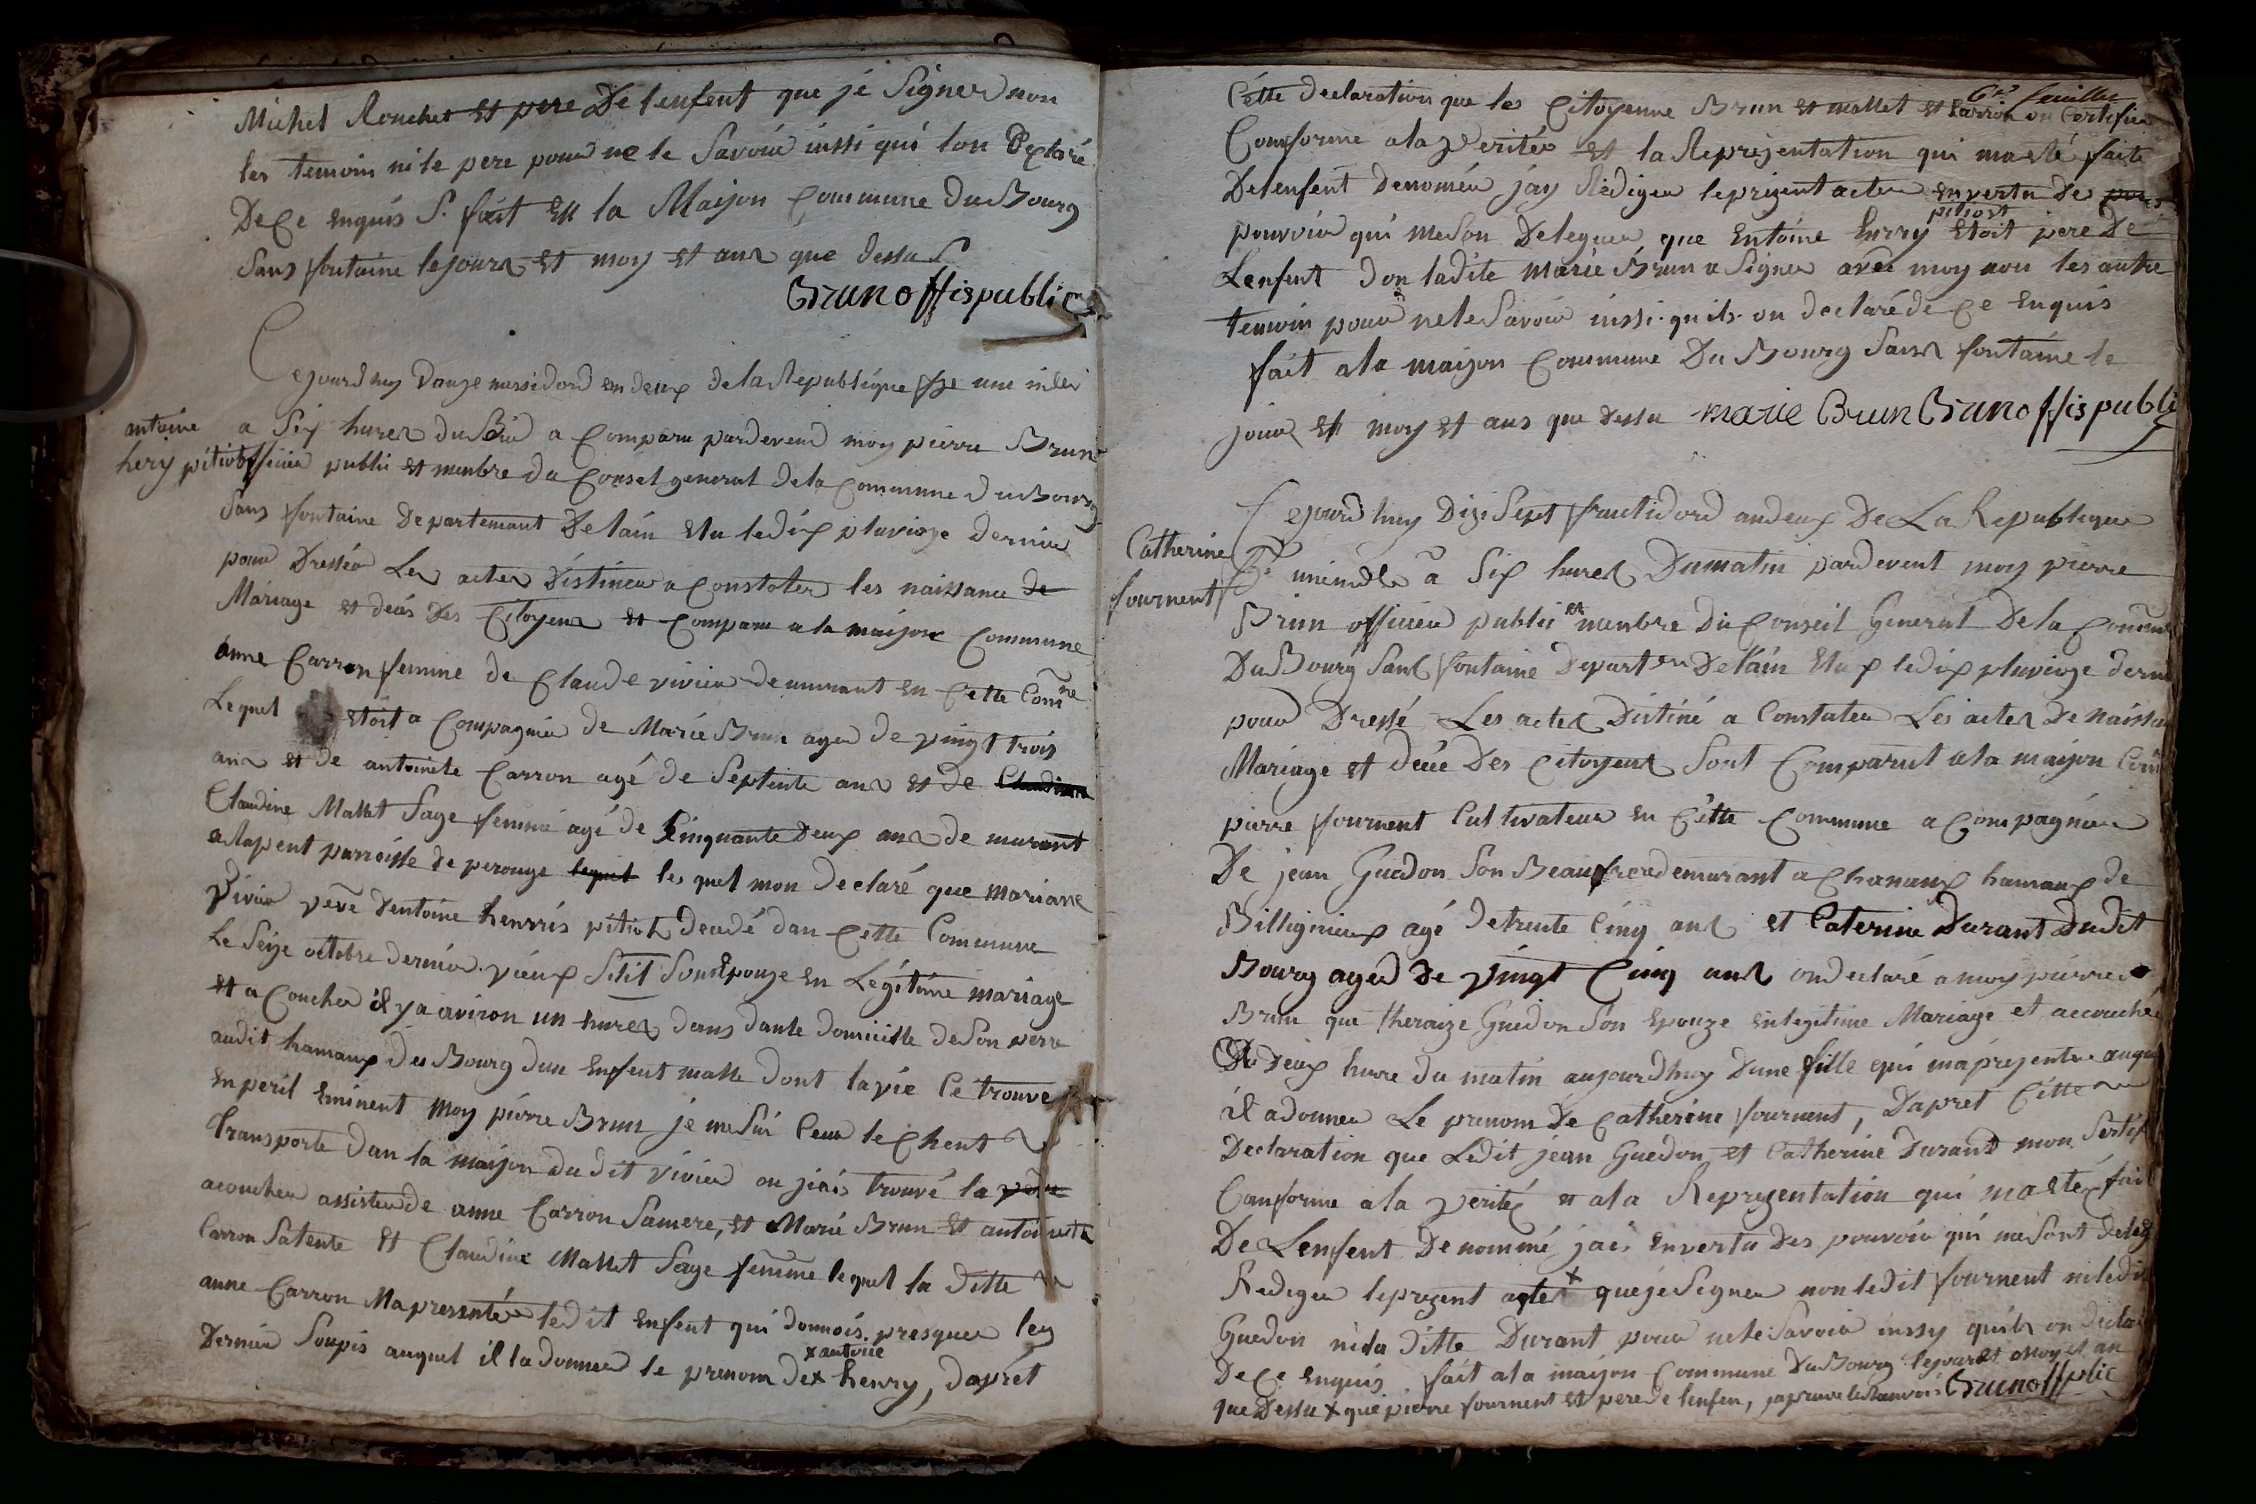 Michel Rouchet et pere De lenfent que je Signer non
les temoin ni le pere pour ne le Savoir inssi qui lon Declaré
De Ce enquis S. fait En la Maison Commune Du Bourg
Sans fontaine le jours et moy et ans que dessus
Brun offispublic
Cejourdhuy Douze messidord en deux de la Republique une indivi
antoine
hery pitiot
a Six hures du Soir a Comparu pardevend moy pierre Brun
officier public et menbre du Consel general de la Commune du Bourg
Sans fontaine Departemant De lain Elu le dix pluvioze dernier
pour Dresser Les actes Distiner a Constater les naissance de
Mariage et decés Des Citoyens et Comparu a la maison Commune
anne Carron femme de Claude vivier demurant en Cette Comne
Lequel Etoit a Compagnié de Marie Brun agee de vingt trois
ans et de antoinete Carron agé de Septente ans et de Claudine
Claudine Mallet Sage femme agé de Cinquante deux ans de murant
a lapent parroisse de perouge lequel les quel mon declaré que mariane
Vivier veve dentoine henrris pitiot decedé dan Cette Commune
Le Seize octobre dernier vieux Setit Son Epouze en Légitime mariage
et a Coucher il y a aviron un hures dans dante domicille de Son perre
audit hamaux du Bourg dun Enfent malle dont la vie Ce trouve
en peril Eminent Moy pierre Brun je me Sui Ceur le Chent
Transporte dan la maison du dit vivier ou jiais trouvé la
acoucher assister de anne Carron Samere, et Marie Brun et antoinete
Carron Satente Et Claudine Mallet Sage femme lequel la ditte
anne Carron Mapresentér ledit Enfent qui donnois presquer ley
Dernier Soupis auquel il la donner le prenom de x henry, dapret
x antoine
6me feuillet
Cette declaration que les Citoyenne Brun et mallet et Carron on Certifier
Comforme a la Verités et la Reprezentation qui ma eté faite
De lenfent denomér jay Rédiger le prezent acter en vertu de
pouvoir qui me Son Deleguer que Entoine henry Etoit pere De
pitiot
Lenfent don ladite marie Brun a Signer avec moy non les autre
temoin pour ne le Savoir inssi quils on declaré de Ce Enquis
fait a la maison Commune Du Bourg Sans fontaine le
jour et moy et ans que dessu marie Brun Brun offispubli
Cejourdhuy Dizi Sept fructidord an deux De La Republique
Catherine
fournent
uneindle a Six hures Dumatin pardevent moy pierre
Brun officier public et menbre Du Conseil General De la Comune
Du Bourg Sans fontaine Departen De lain Elu p le dix pluvioze derni
pour Dressé Les actes Distiné a Constater Les actes De naissan
Mariage et décée Des Citoyens Sont Comparut a la maison Com
pierre fournent Cultivateur en Cette Commune a Compagnier
De jean Guedon Son Beaufrere demurant a Chanaux hamaux de
Billignieux agé De trente Cinq ans et Caterine Durant Dudit
Bourg ager De vingt Cinq ans on declaré a moy pierre
Brun que theraize Guedon Son Epouze en legitime Mariage et accouche
A Deux hurre du matin aujourdhuy Dune fille qui ma prezenter auque
il a donner Le prenom De Catherine fournent, Dapret Cette
Declaration que Ledit jean Guedon et Catherine Durand mon Sertif
Comforme a la verité et a la Reprezentation qui ma eté fait
De Lenfent De nommé jais en vertu Des pouvoir qui me Sont deleg
Rediger le prezent acter x que je Signer non ledit fournent ni ledi
Guedon ni la Ditte Durant pour ne le Savoir inssy quils on decla
De Ce enquis fait a la maison Commune Du Bourg le jour et Moy et an
que Dessu x que pierre fournent et pere de lenfen, japreuve le Renvois Brun offplic